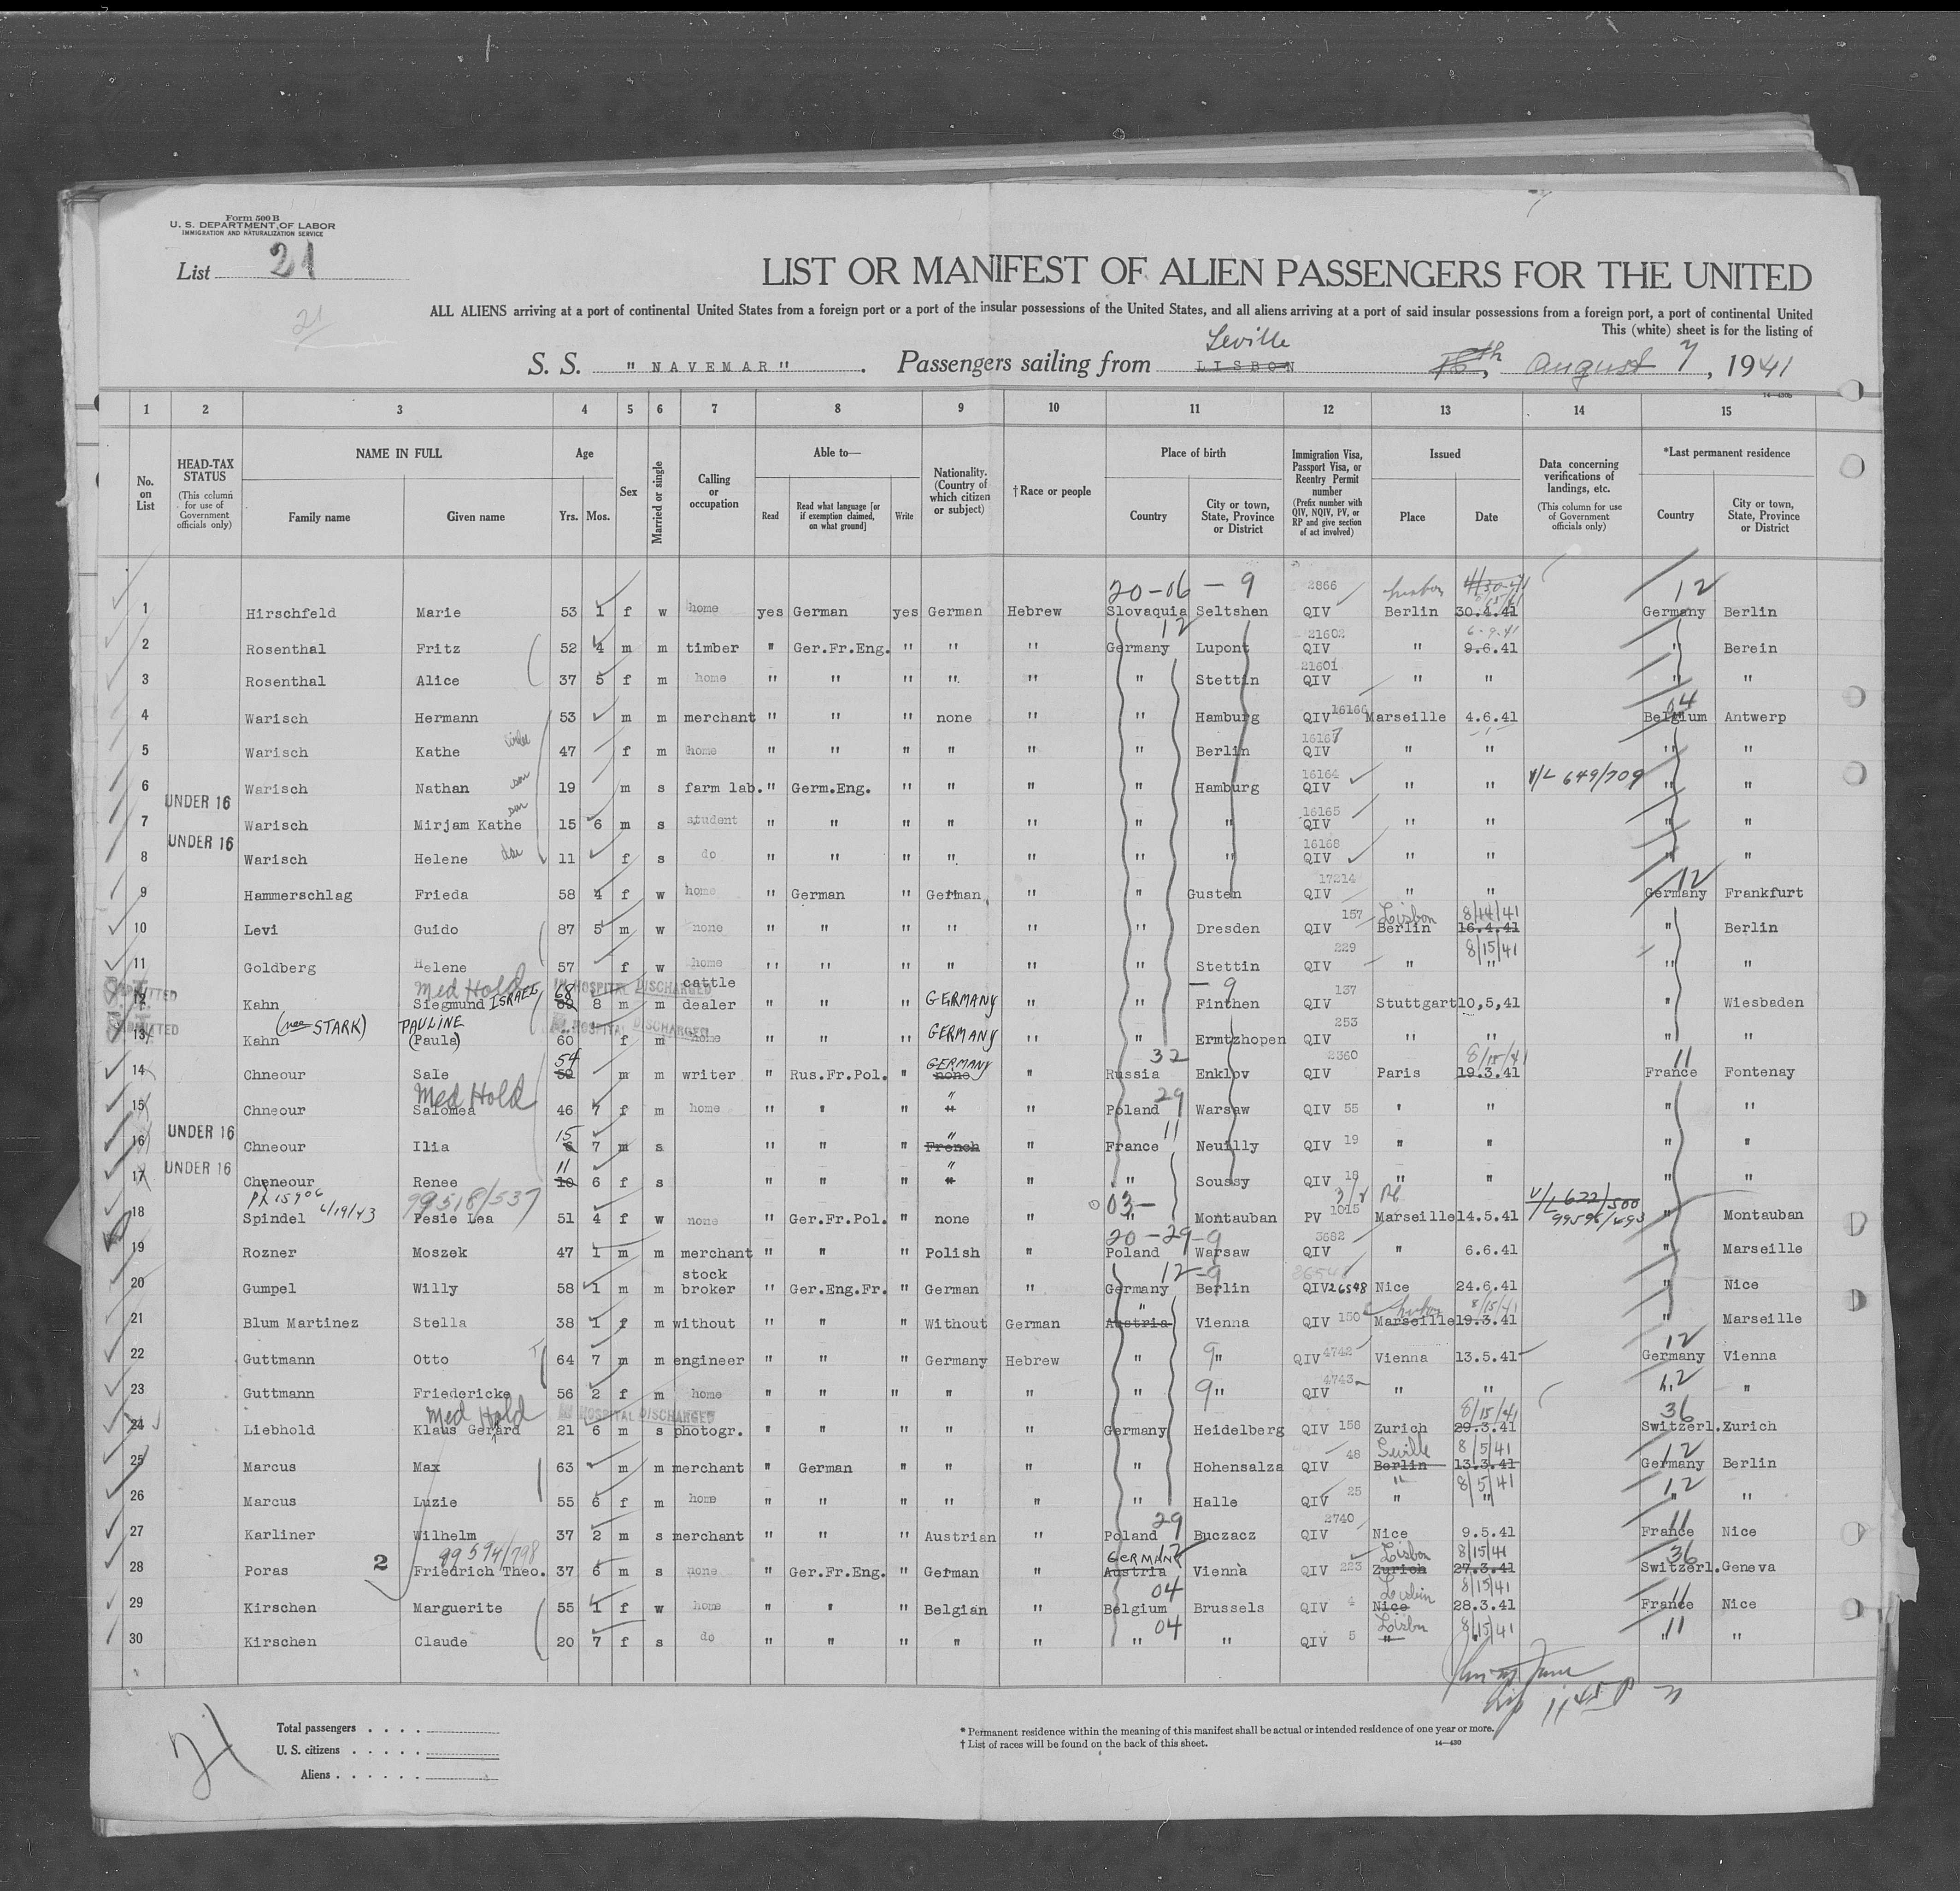 Form 500 B
U. S. DEPARTMENT OF LABOR
IMMIGRATION AND NATURALIZATION SERVICE
List 21
21
LIST OR MANIFEST OF ALIEN PASSENGERS FOR THE UNITED
ALL ALIENS arriving at a port of continental United States from a foreign port or a port of the insular possessions of the United States, and all aliens arriving at a port of said insular possessions from a foreign port, a port of continental United
This (white) sheet is for the listing of
Seville
S. S. "NAVEMAR". Passengers sailing from LISBON 16th, August 7, 1941
14—430b
1 2 3 4 5 6 7 8 9 10 11 12 13 14 15
No. on List
HEAD-TAX STATUS (This column for use of Government officials only)
NAME IN FULL Family name Given name
Age Yrs. Mos.
Sex
Married or single
Calling or occupation
Able to— Read Read what language [or if exemption claimed, on what ground] Write
Nationality. (Country of which citizen or subject)
†Race or people
Place of birth Country City or town, State, Province or District
Immigration Visa, Passport Visa, or Reentry Permit number (Prefix number with QIV, NQIV, PV, or RP and give section of act involved)
Issued Place Date
Data concerning verifications of landings, etc. (This column for use of Government officials only)
*Last permanent residence Country City or town, State, Province or District
20-06 - 9 2866 12
1 Hirschfeld Marie 53 1 f w home yes German yes German Hebrew Slovaquia Seltshan QIV Berlin 30.4.41 Germany Berlin
12 21602 6-9-41
2 Rosenthal Fritz 52 4 m m timber " Ger.Fr.Eng. " " " Germany Lupont QIV " 9.6.41 " Berein
21601
3 Rosenthal Alice 37 5 f m home " " " " " " Stettin QIV " " " "
04
4 Warisch Hermann 53 m m merchant " " " none " " Hamburg QIV 16166 Marseille 4.6.41 Belgium Antwerp
wife 16167
5 Warisch Kathe 47 f m home " " " " " " Berlin QIV " " " "
son 16164
6 Warisch Nathan 19 m s farm lab. " Germ.Eng. " " " " Hamburg QIV " " V/L 649/709 " "
UNDER 16 son 16165
7 Warisch Mirjam Kathe 15 6 m s student " " " " " " " QIV " " " "
UNDER 16 dau 16168
8 Warisch Helene 11 f s do " " " " " " " QIV " " " "
17214 12
9 Hammerschlag Frieda 58 4 f w home " German " German " " Gusten QIV " " Germany Frankfurt
157 Lisbon 8/14/41
10 Levi Guido 87 5 m w none " " " " " " Dresden QIV Berlin 16.4.41 " Berlin
229 8/15/41
11 Goldberg Helene 57 f w home " " " " " " Stettin QIV " " " "
ADMITTED Med Hold ISRAEL 68 IN HOSPITAL DISCHARGED cattle - 9 137
12 Kahn Siegmund 69 8 m m dealer " " " GERMANY " " Finthen QIV Stuttgart 10,5,41 " Wiesbaden
ADMITTED (nee STARK) PAULINE IN HOSPITAL DISCHARGED 253
13 Kahn (Paula) 60 f m home " " " GERMANY " " Ermtzhopen QIV " " " "
54 GERMANY 32 2360 8/15/41 11
14 Chneour Sale 59 m m writer " Rus.Fr.Pol. " none " Russia Enklov QIV Paris 19.3.41 France Fontenay
Med Hold " 29
15 Chneour Salomea 46 7 f m home " " " " " Poland Warsaw QIV 55 " " " "
UNDER 16 15 " 11
16 Chneour Ilia 6 7 m s " " " French " France Neuilly QIV 19 " " " "
UNDER 16 11 "
17 Cheneour Renee 10 6 f s " " " " " " Soussy QIV 18 " " " "
PL 15906 6/19/43 99518/537 03- V/L 622/500
18 Spindel Pesie Lea 51 4 f w none " Ger.Fr.Pol. " none " " Montauban PV 1015 Marseille 14.5.41 " Montauban
20-29-9 3682
19 Rozner Moszek 47 1 m m merchant " " " Polish " Poland Warsaw QIV " 6.6.41 " Marseille
stock 12-9
20 Gumpel Willy 58 1 m m broker " Ger.Eng.Fr. " German " Germany Berlin QIV 26548 Nice 24.6.41 " Nice
" Lisbon 8/15/41
21 Blum Martinez Stella 38 1 f m without " " " Without German Austria Vienna QIV 150 Marseille 19.3.41 " Marseille
12
22 Guttmann Otto 64 7 m m engineer " " " Germany Hebrew " 9 " QIV 4742 Vienna 13.5.41 Germany Vienna
12
23 Guttmann Friedericke 56 2 f m home " " " " " " 9 " QIV 4743 " " " "
Med Hold IN HOSPITAL DISCHARGED 8/15/41 36
24 Liebhold Klaus Gerard 21 6 m s photogr. " " " " " Germany Heidelberg QIV 158 Zurich 29.3.41 Switzerl. Zurich
Seville 8/5/41 12
25 Marcus Max 63 m m merchant " German " " " " Hohensalza QIV 48 Berlin 13.3.41 Germany Berlin
" 8/5/41 12
26 Marcus Luzie 55 6 f m home " " " " " " Halle QIV 25 " " " "
29 2740 11
27 Karliner Wilhelm 37 2 m s merchant " " " Austrian " Poland Buczacz QIV Nice 9.5.41 France Nice
2 99594/798 GERMANY 12 Lisbon 8/15/41 36
28 Poras Friedrich Theo. 37 6 m s none " Ger.Fr.Eng. " German " Austria Vienna QIV 223 Zurich 27.3.41 Switzerl. Geneva
04 Lisbon 8/15/41 11
29 Kirschen Marguerite 55 1 f w home " " " Belgian " Belgium Brussels QIV 4 Nice 28.3.41 France Nice
04 Lisbon 8/15/41 11
30 Kirschen Claude 20 7 f s do " " " " " " " QIV 5 " " " "
21
Total passengers . . . .
U. S. citizens . . . . .
Aliens . . . . . .
* Permanent residence within the meaning of this manifest shall be actual or intended residence of one year or more.
† List of races will be found on the back of this sheet.
14—430